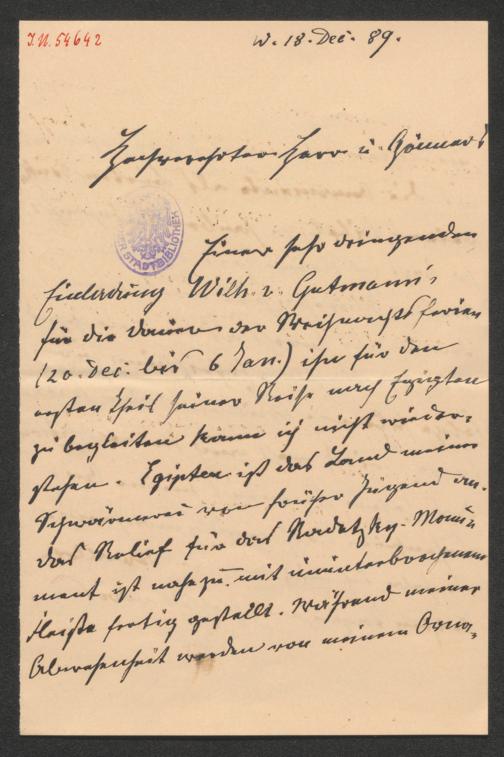 I.N. 54642
W. 18. Dec. 89.
Hochverehrter Herr u Gönner!
STADTBIBLIOTHEK
Einer sehr dringenden
Einladung Wilh. v. Gutmann's
für die Dauer der Weihnachtsferien
(20. Dec. bis 6 Jan.) ihn für den
ersten Theil seiner Reise nach Egipten
zu begleiten kann ich nicht wieder-
stehen. Egipten ist das Land meiner
Schwärmerei von früher Jugend an.
Das Relief für das Radetzky-Monu-
ment ist nahezu mit ununterbrochenem
Fleiße fertig gestellt. Während meiner
Abwesenheit werden von meinem Orna-